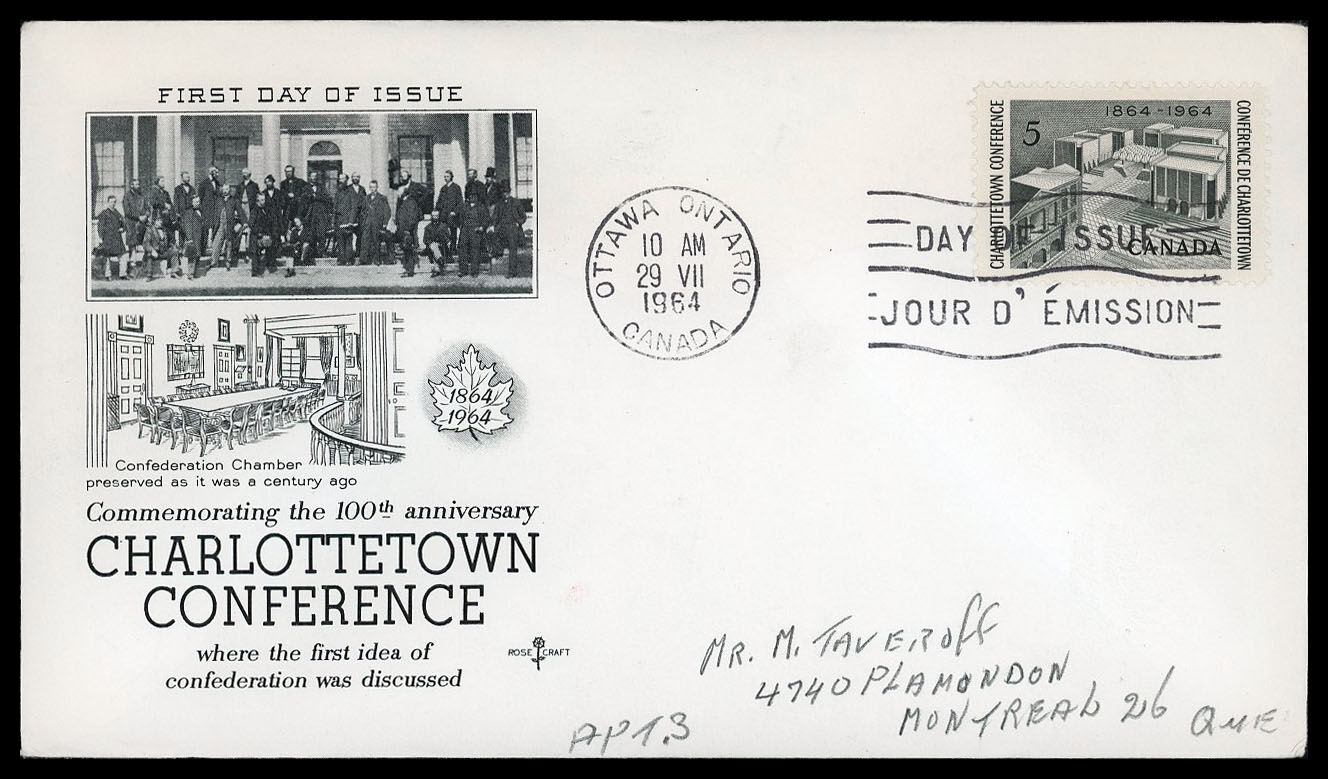 FIRST DAY OF ISSUE
Confederation Chamber
preserved as it was a century ago
1864
1964
Commemorating the 100th anniversary
CHARLOTTETOWN
CONFERENCE
where the first idea of
confederation was discussed
ROSE CRAFT
OTTAWA ONTARIO
10 AM
29 VII
1964
CANADA
1864-1964
5
CHARLOTTETOWN CONFERENCE
CONFÉRENCE DE CHARLOTTETOWN
CANADA
DAY OF ISSUE
JOUR D' ÉMISSION
MR. M. TAVEROFF
4740 PLAMONDON
MONTREAL 26 QUE
APT.3